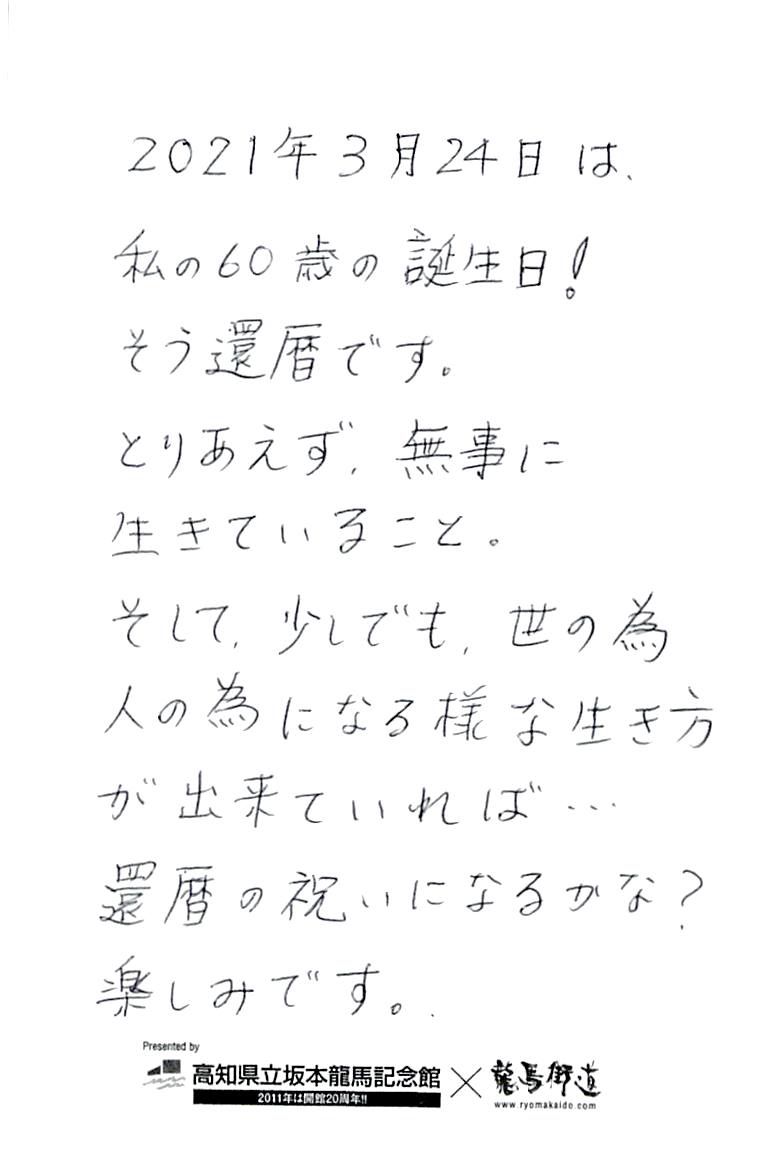 2021年3月24日は、
私の60歳の誕生日!
そう還暦です。
とりあえず、無事に
生きていること。
そして、少しでも、世の為
人の為になる様な生き方
が出来ていれば…
還暦の祝いになるかな?
楽しみです。
Presented by
高知県立坂本龍馬記念館×龍馬街道
2011年は開館20周年!!
www.ryomakaido.com